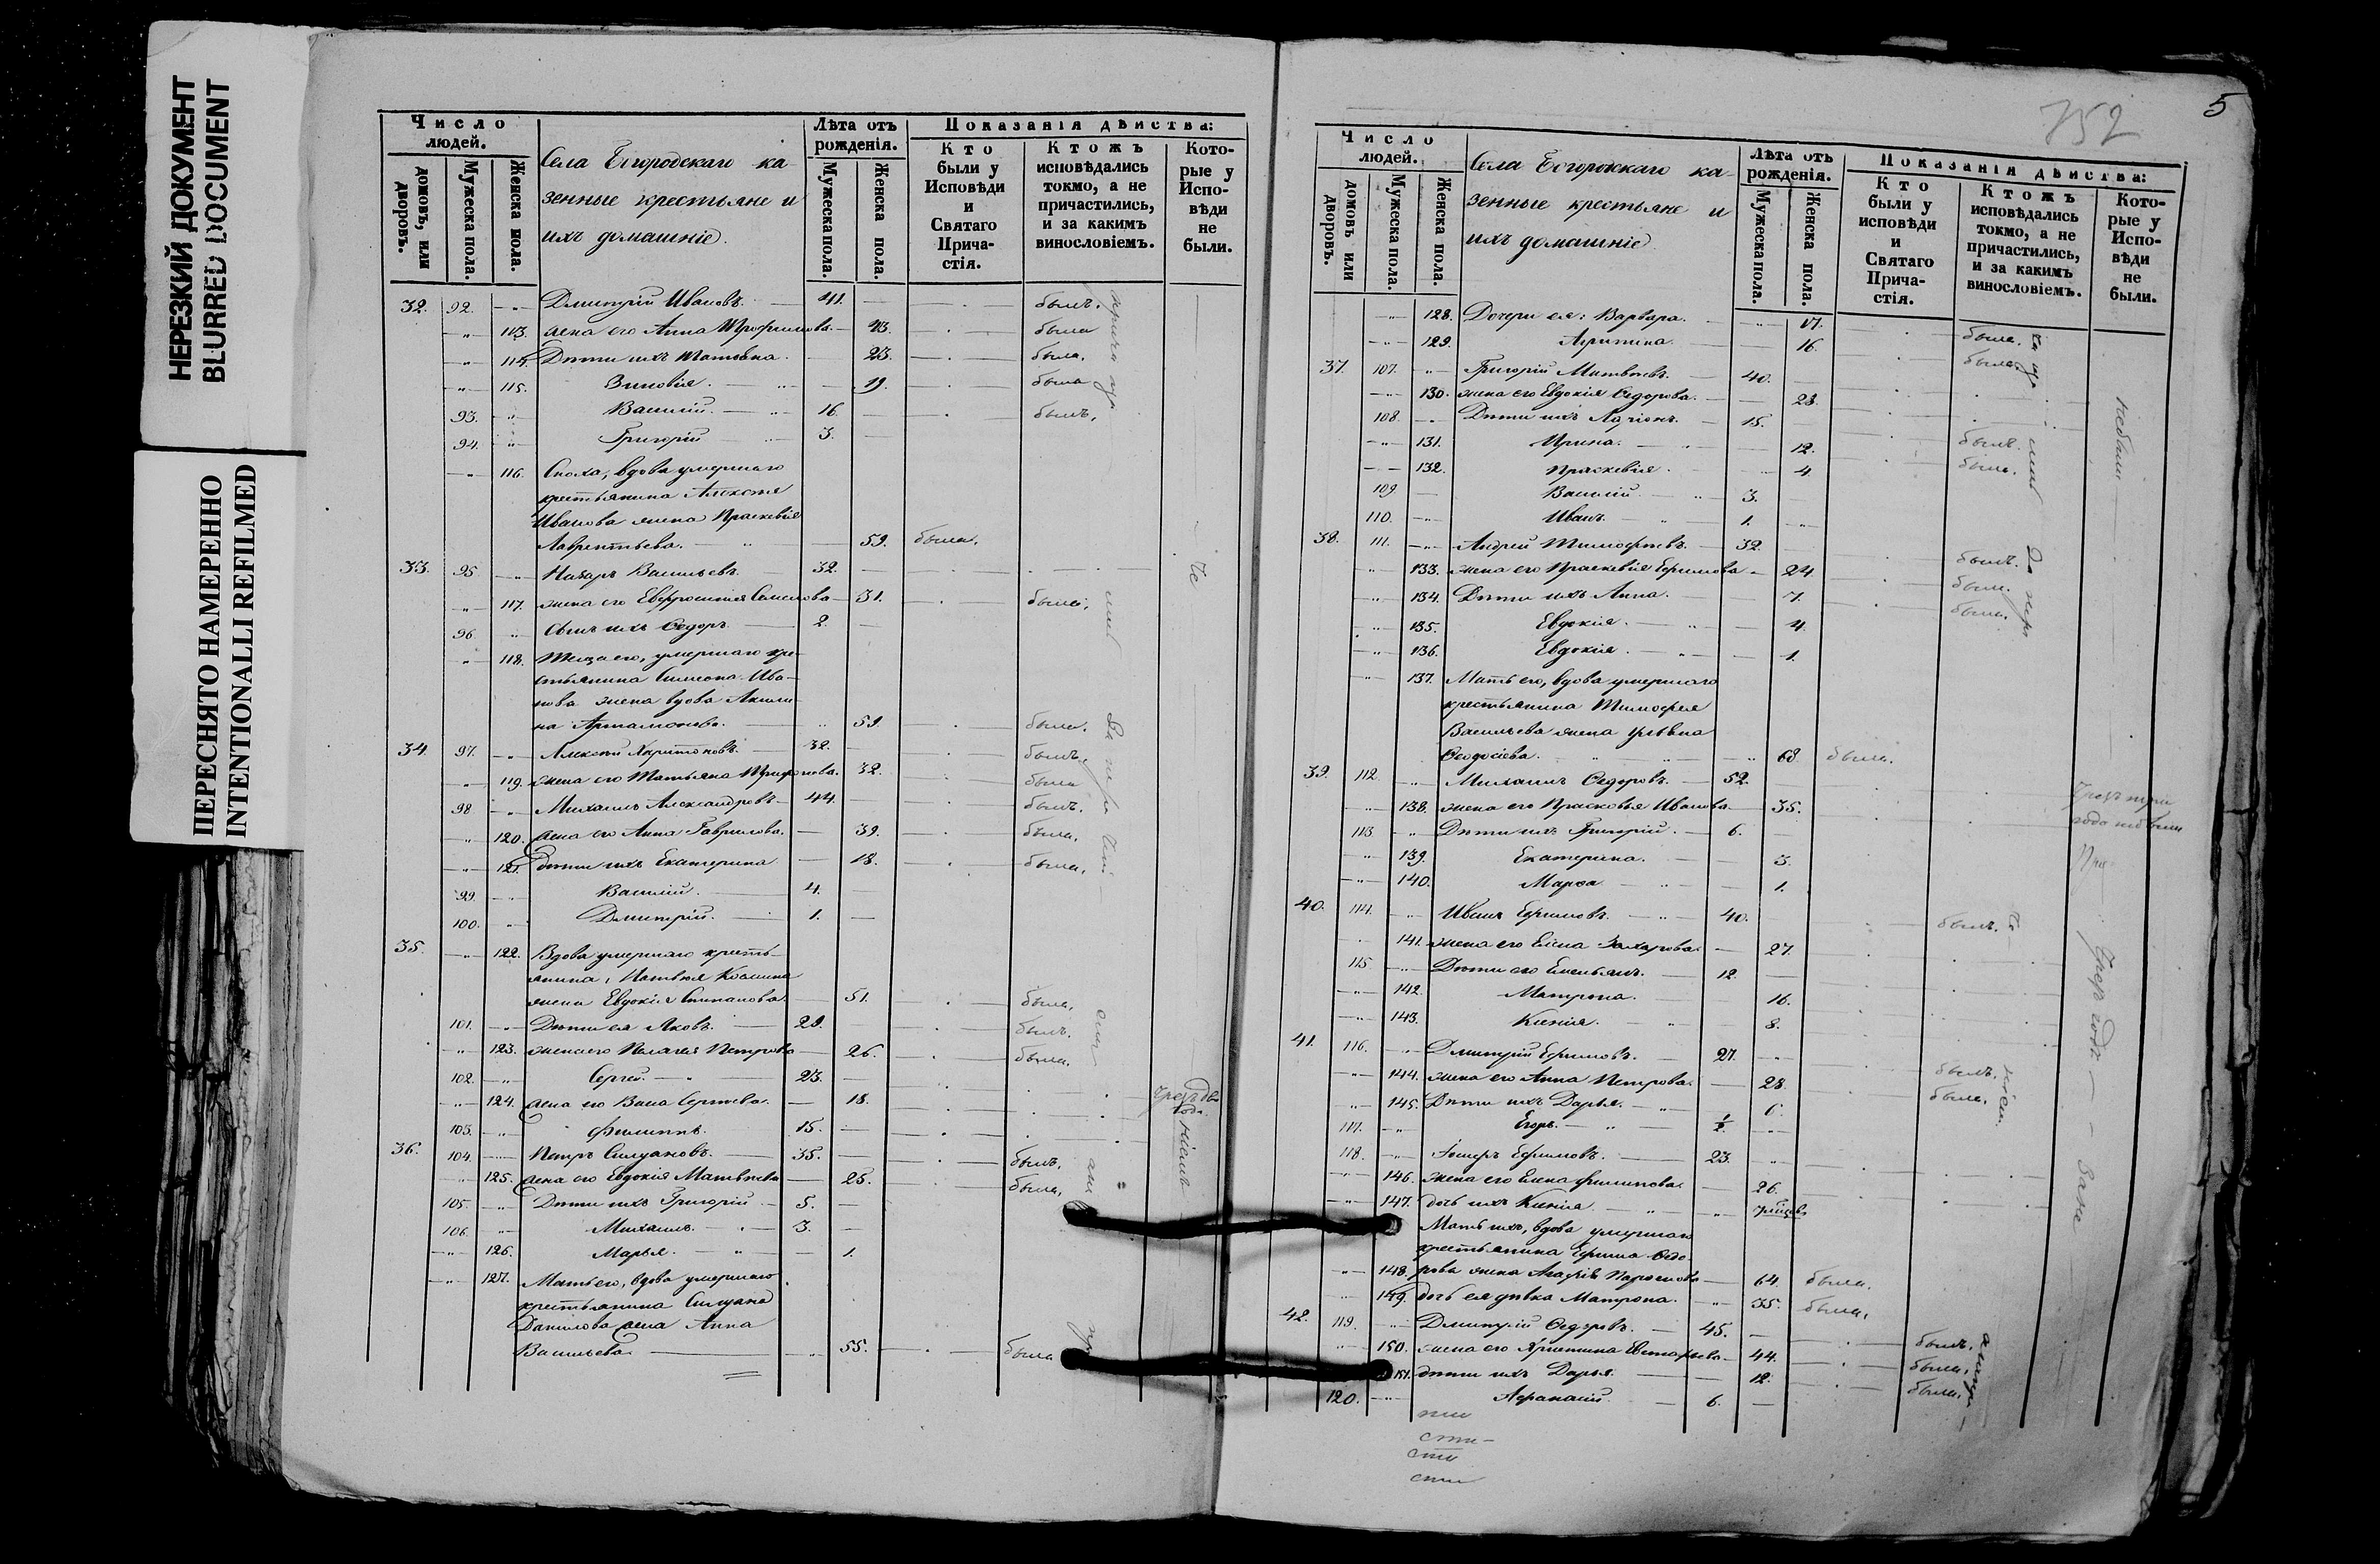 НЕРЕЗКИЙ ДОКУМЕНТ
BLURRED DOCUMENT
ПЕРЕСНЯТО НАМЕРЕННО
INTENTIONALLI REFILMED
Число людей.
домовъ, или дворовъ.
Мужеска пола.
Женска пола.
Села Богородскаго ка-
зенные крестьяне и
ихъ домашніе.
Лѣта отъ рожденія.
Мужеска пола.
Женска пола.
Показанія дѣйства:
Кто были у Исповѣди и Святаго Прича- стія.
Ктожъ исповѣдались токмо, а не причастились, и за какимъ винословіемъ.
Кото- рые у Испо- вѣди не были.
32. 92. Дмитрій Ивановъ. 41. былъ.
113. жена его Анна Трофимова 43. была
114. Дѣти ихъ 23. была.
115. Зиновія. 19. была
93. Василій. 16. былъ.
94. Григорій 3.
116. Сноха, вдова умершаго
крестьянина Алексѣя
Иванова жена Праскевія
Лаврентьева. 59. была.
33. 95. Назаръ Васильевъ. 32.
117. жена его Евфросинія Семенова 31. была,
96. сынъ ихъ Ѳедоръ 2.
118. Теща его, умершаго кре-
стьянина Симеона Ива-
нова жена вдова Акили-
на Артамонова. 59. была.
34. 97. Алексѣй Харитоновъ. 32. былъ.
119. жена его Татьяна Трифонова. 32. была
98. Михаилъ Александровъ 44. былъ.
120. жена его Анна Гаврилова. 39. была.
121. дѣти ихъ Екатерина 18. была,
99. Василій. 4.
100. Дмитрій. 1.
35. 122. Вдова умершаго кресть-
янина, Матвѣя Козмина
жена Евдокія Степанова. 51. была.
101. Дѣти ея Яковъ. 29. былъ.
123. жена его Пелагея Петрова 26. была.
102. Сергей. 23.
124. жена его Васса Сергѣева. 18.
103. Филиппъ. 15.
36. 104. Петръ Силуановъ. 35. былъ.
125. жена его Евдокія Матвѣева 25. была,
105. Дѣти ихъ Григорій 5.
106. Михаилъ. 3.
126. Марья. 1.
127. Мать его, вдова умершаго
крестьянина Силуана
Данилова жена Анна
Васильева 55. была
752
5
Число людей.
домовъ или дворовъ.
Мужеска пола.
Женска пола.
Села Богородскаго ка-
зенные крестьяне и
ихъ домашніе
Лѣта отъ рожденія.
Мужеска пола.
Женска пола.
Показанія дѣйства:
Кто были у исповѣди и Святаго Прича- стія.
Ктожъ исповѣдались токмо, а не причастились, и за какимъ винословіемъ.
Кото- рые у Испо- вѣди не были.
128. Дочери ея: Варвара. 17. была.
129. Агрипина. 16. была
37. 107. Григорій Матвѣевъ. 40.
130. жена его Евдокія Ѳедорова. 28.
108. Дѣти ихъ Ларіонъ. 15.
131. Ирина. 12.
132. Праскевія. 4
109. Василій. 3.
110. Иванъ. 1.
38. 111. Андрей Тимофѣевъ. 32. былъ.
133. жена его Праскевія Ефимова 24. была.
134. Дѣти ихъ Анна. 7. была.
135. Евдокія. 4.
136. Евдокія. 1.
137. Мать его, вдова умершаго
крестьянина Тимофея
Васильева жена
Ѳеодосіева. 68. была.
39. 112. Михаилъ Ѳедоровъ. 52.
138. жена его Прасковья Иванова 35.
113. Дѣти ихъ Григорій. 6.
139. Екатерина. 3.
140. Марѳа 1.
40. 114. Иванъ Ефимовъ. 40. былъ.
141. жена его Елена Захарова 27.
115. Дѣти его Емельянъ. 12.
142. Матрона. 16.
143. Ксенія. 8.
41. 116. Дмитрій Ефимовъ. 27. былъ.
144. жена его Анна Петрова. 28. была,
145. Дѣти ихъ Дарья. 6.
117. Егоръ. 1/2
118. Ефимовъ. 23.
146. жена его Елена Филипова 26.
147. дочь ихъ Ксенія
Мать ихъ, вдова умершаго
крестьянина Ефима Ѳедо-
148. рова жена Агафія 64. была.
149. дочь ея дѣвка Матрона. 35. была.
42. 119. Дмитрій Ѳедоровъ. 45. былъ.
150. жена его Христина 44. была.
151. дѣти ихъ Дарья 12. была.
120. Афанасій. 6.